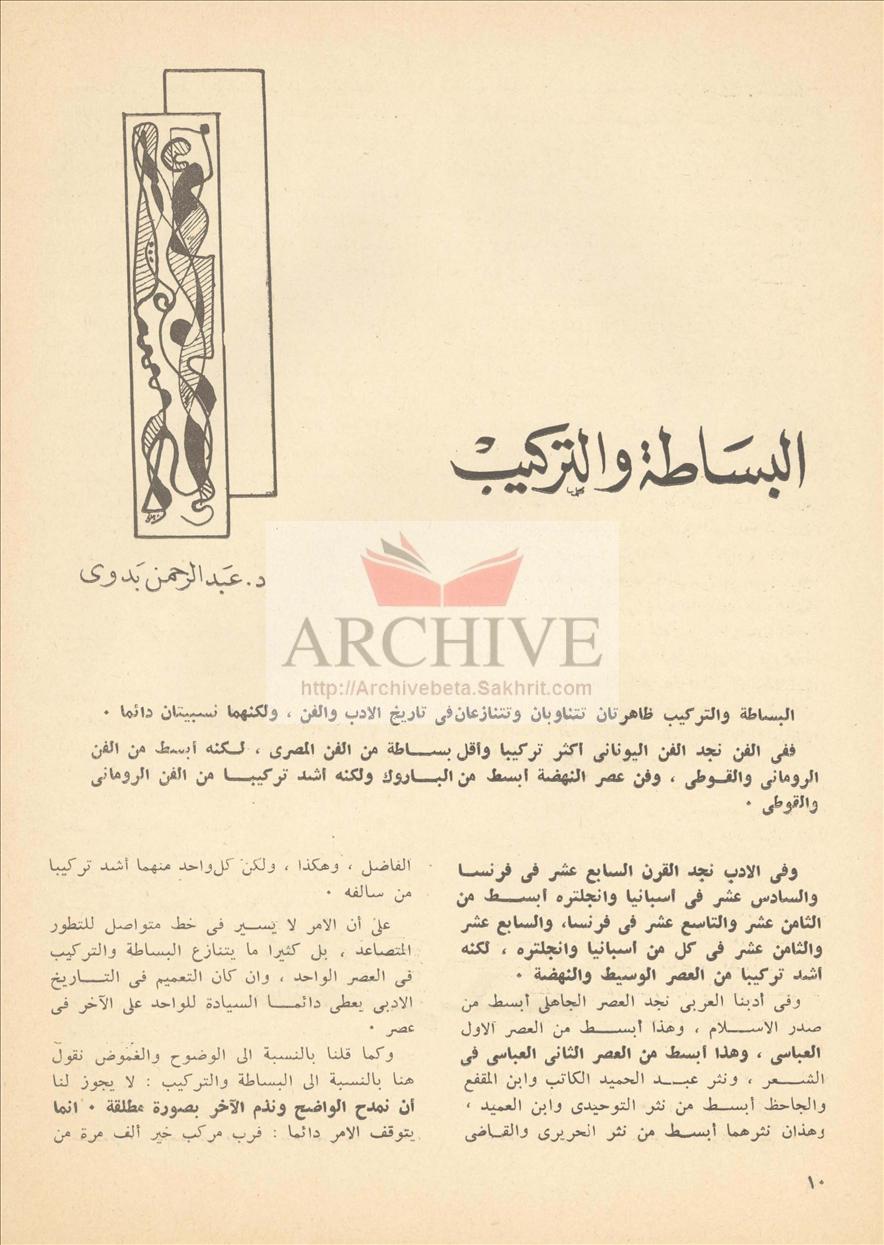 البسَاطة والتركيبْ
د. عَبد الرحمن بَدوى
ARCHIVE
http://Archivebeta.Sakhrit.com
البساطة والتركيب ظاهرتان تتناوبان وتتنازعان فى تاريخ الادب والفن ، ولكنهما نسبيتان دائما ٠
ففى الفن نجد الفن اليونانى أكثر تركيبا وأقل بســـاطة من الفن المصرى ، لـكنه أبسط من الفن
الرومانى والقـوطى ، وفن عصر النهضة أبسط من البـاروك ولكنه أشد تركيبـــا من الفن الرومانى
والقوطى ٠
وفى الادب نجد القرن السابع عشر فى فرنسـا
والسادس عشر فى أسبانيا وانجلتره أبســـط من
الثامن عشر والتاسع عشر فى فرنسا، والسابع عشر
والثامن عشر فى كل من أسبانيا وانجلتره ، لكنه
أشد تركيبا من العصر الوسيط والنهضة ٠
وفى أدبنا العربى نجد العصر الجاهلى أبسط من
صدر الاســـلام ، وهذا أبســـط من العصر الاول
العباسى ، وهذا أبسط من العصر الثانى العباسى فى
الشـــعر ، ونثر عبـــد الحميد الكاتب وابن المقفع
والجاحظ أبسـط من نثر التوحيدى وابن العميد ،
وهذان نثرهما أبسـط من نثر الحريرى والقـاضى
الفاضل ، وهكذا ، ولكن كل واحد منهما أشد تركيبا
من سالفه ٠
على أن الامر لا يســـير فى خط متواصل للتطور
المتصاعد ، بل كثيرا ما يتنازع البساطة والتركيب
فى العصر الواحد ، وان كان التعميم فى التـــاريخ
الادبى يعطى دائمـــا السيادة للواحد على الآخر فى
عصر ٠
وكما قلنا بالنسبة الى الوضوح والغموض نقول
هنا بالنسبة الى البساطة والتركيب : لا يجوز لنا
أن نمدح الواضح ونذم الآخر بصورة مطلقة ٠ انما
يتوقف الامر دائما : فرب مركب خير ألف مرة من
١٠